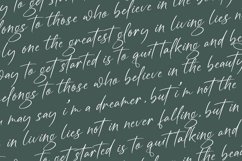 longs to those who believe in the beauty
ly one the greatest glory in living lies n
day to get started is to quit talking and be
belongs to those who believe in the beauty
u may say i'm a dreamer, but i'm not the
in living lies not in never falling, but in
to get started is to quit talking and
those who believe in the beauty